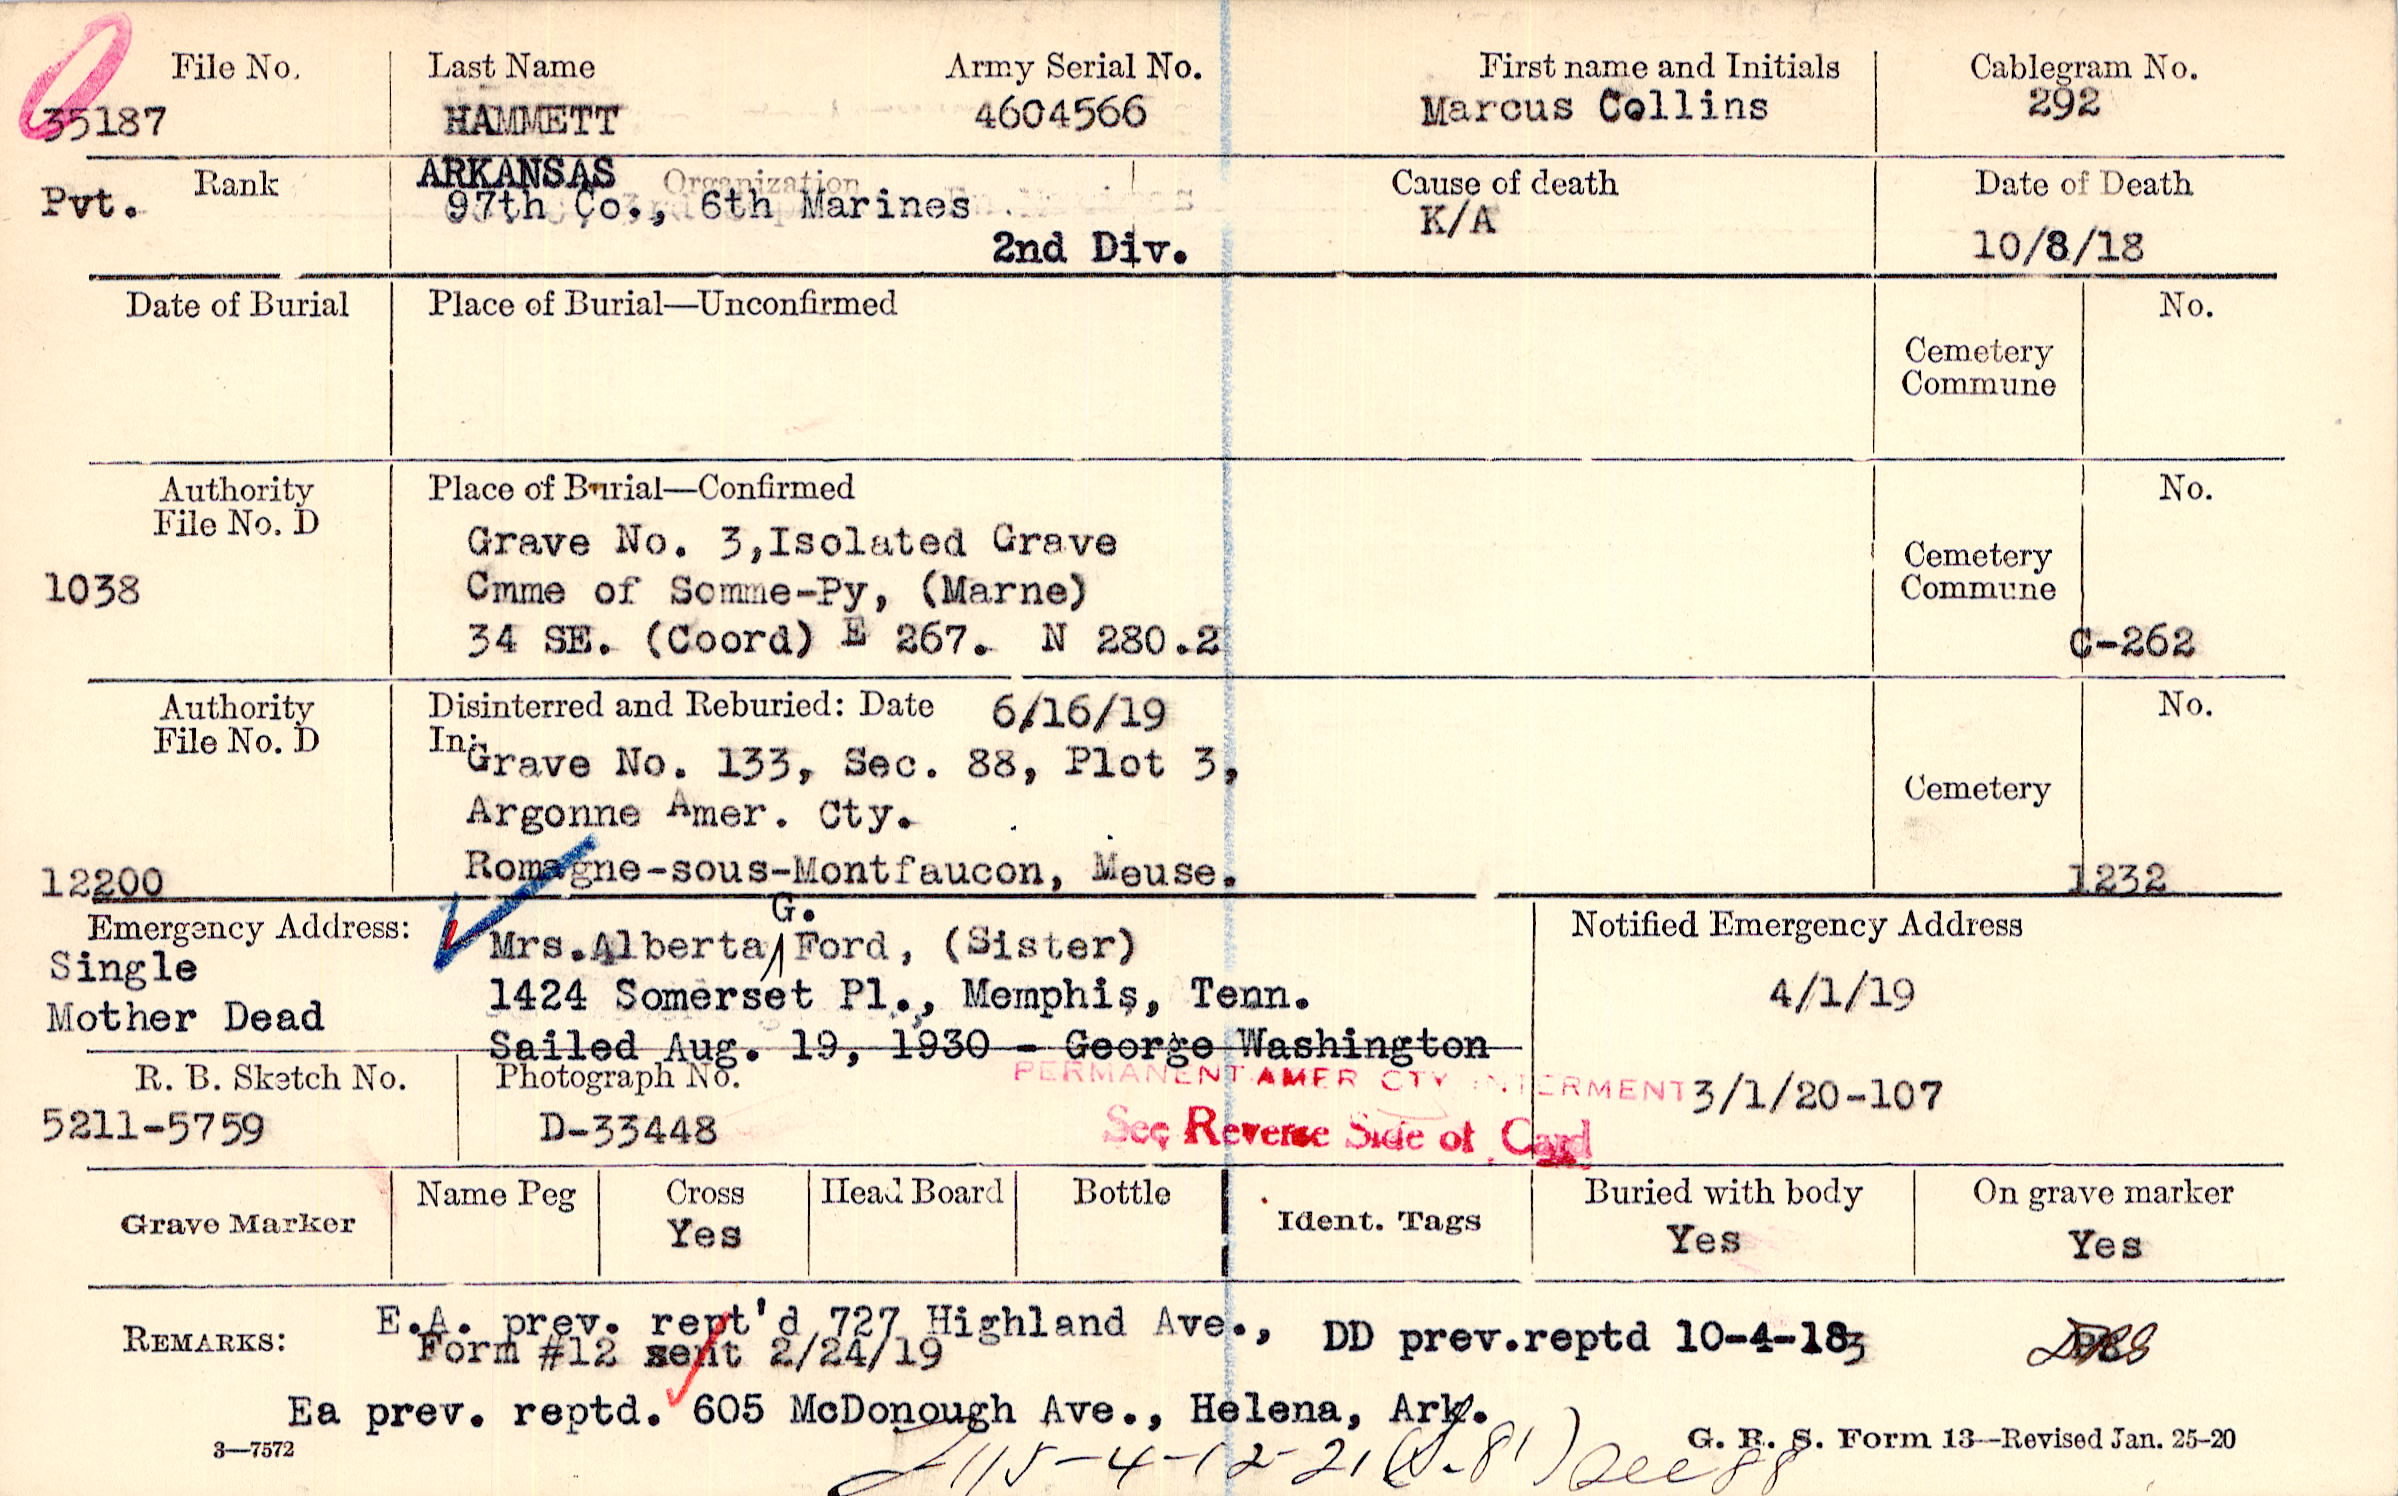 File No. Last Name Army Serial No. First name and Initials Cablegram No.
35187 HAMMETT 4604566 Marcus Collins 292
Rank ARKANSAS Organization Cause of death Date of Death
Pvt. 97th Co., 6th Marines K/A
2nd Div. 10/8/18
Date of Burial Place of Burial—Unconfirmed No.
Cemetery
Commune
Authority Place of Burial—Confirmed No.
File No. D
Grave No. 3,Isolated Grave
Cemetery
1038 Cmme of Somme-Py, (Marne) Commune
34 SE. (Coord) E 267. N 280.2 C-262
Authority Disinterred and Reburied: Date 6/16/19 No.
File No. D In:
Grave No. 133, Sec. 88, Plot 3,
Cemetery
Argonne Amer. Cty.
12200 Romagne-sous-Montfaucon, Meuse. 1232
G.
Emergency Address: Mrs.Alberta Ford, (Sister) Notified Emergency Address
Single
1424 Somerset Pl., Memphis, Tenn. 4/1/19
Mother Dead
Sailed Aug. 19, 1930 - George Washington
R. B. Sketch No. Photograph No. PERMANENT AMER CTY INTERMENT 3/1/20-107
5211-5759 D-33448 See Reverse Side of Card
Grave Marker Name Peg Cross Head Board Bottle Ident. Tags Buried with body On grave marker
Yes Yes Yes
REMARKS: E.A. prev. rept'd 727 Highland Ave., DD prev.reptd 10-4-18
Form #12 sent 2/24/19
Ea prev. reptd. 605 McDonough Ave., Helena, Ark.
3—7572 G. R. S. Form 13—Revised Jan. 25-20